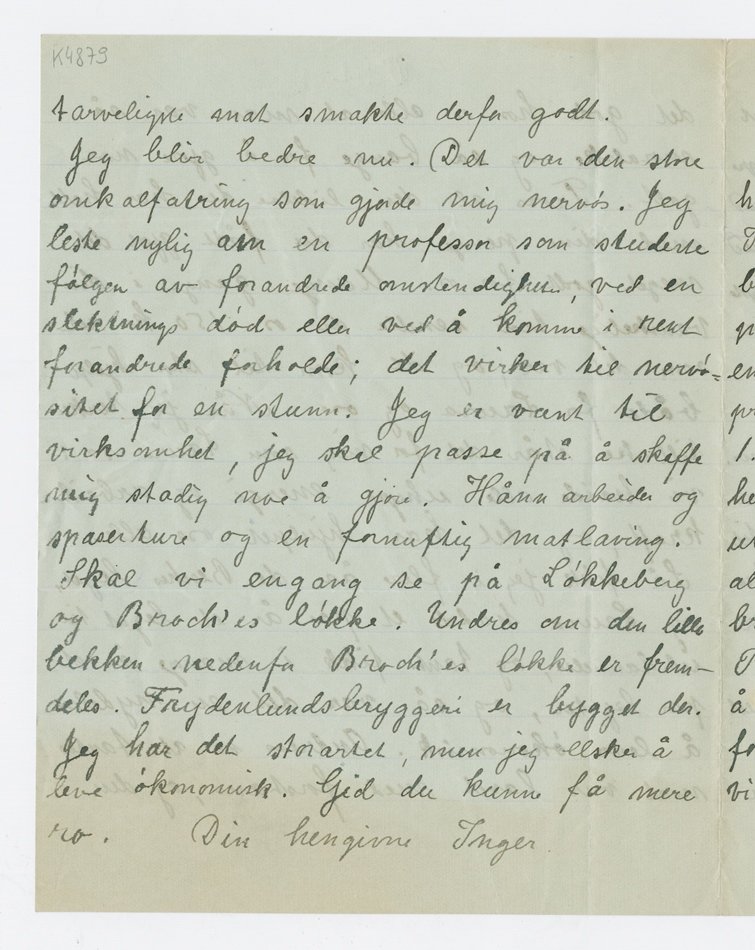 K4879
tarveligste mat smakte derfor godt.
Jeg blir bedre nu. Det var den store
omkalfatring som gjorde mig nervøs. Jeg
leste nylig om en professor som studerte
følgen av forandrede omstendigheter, ved en
slektnings død eller ved å komme i rent
forandrede forholde; det virker til nervø=
sitet for en stunn. Jeg er vant til
virksomhet, jeg skal passe på å skaffe
mig stadig noe å gjøre. Hånn arbeider og
spaserture og en fornuftig matlaving.
Skal vi engang se på Løkkeberg
og Broch'es løkke. Undres om den lille
bekken nedenfor Broch'es løkke er frem-
deles. Frydenlundsbryggeri er bygget der.
Jeg har det storartet, men jeg elsker å
leve økonomisk. Gid du kunne få mere
ro. Din hengivne Inger.